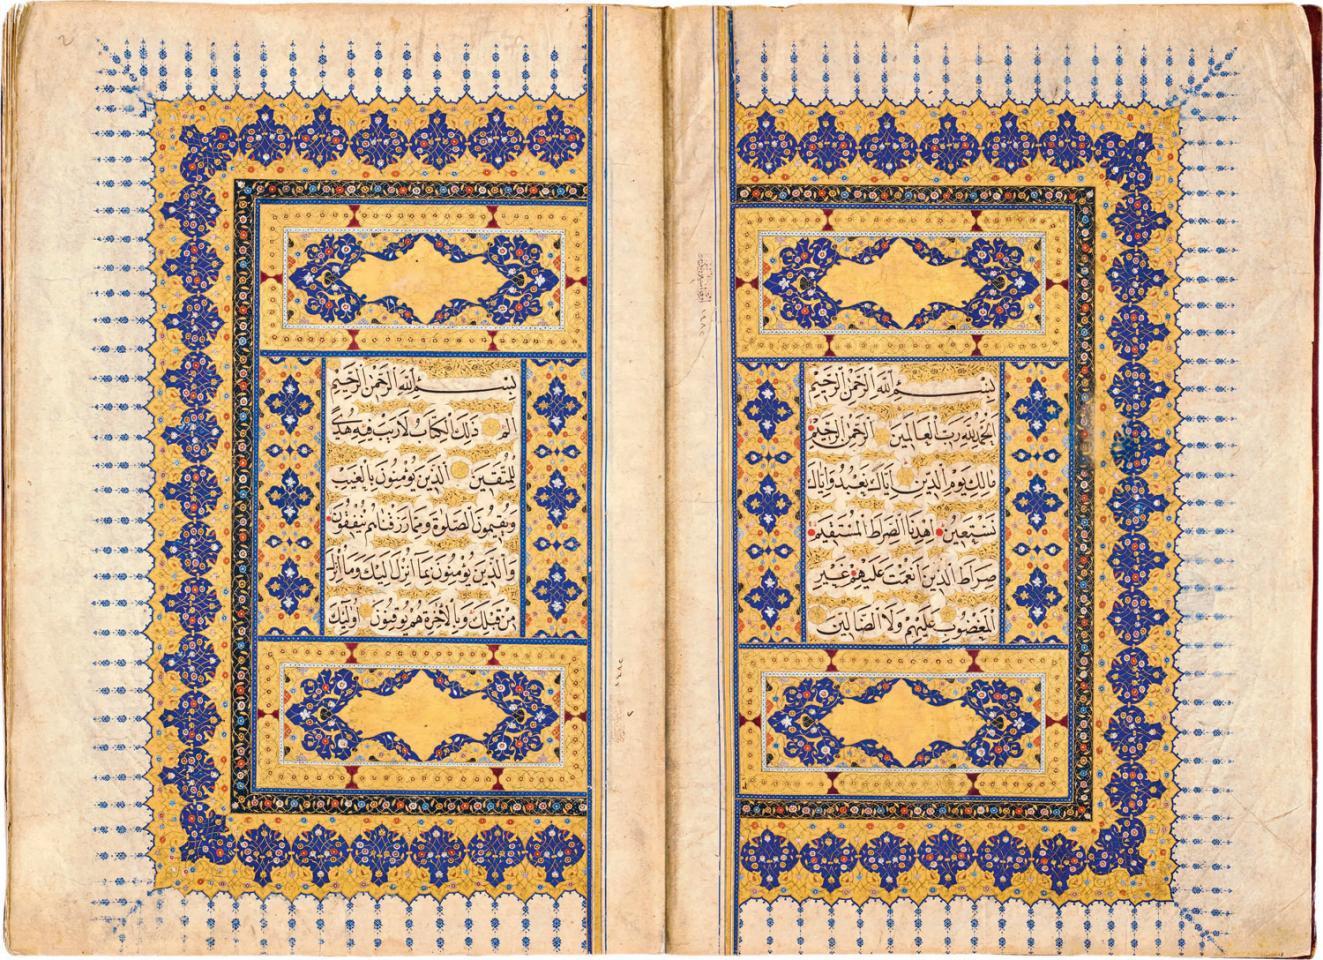 بسم الله الرحمن الرحيم
الحمد لله رب العالمين الرحمن الرحيم
مالك يوم الدين اياك نعبد واياك
نستعين اهدنا الصراط المستقيم
صراط الذين انعمت عليهم غير
المغضوب عليهم ولا الضالين
بسم الله الرحمن الرحيم
الم ذلك الكتاب لا ريب فيه هدى
للمتقين الذين يؤمنون بالغيب
ويقيمون الصلوة ومما رزقناهم ينفقون
والذين يؤمنون بما انزل اليك وما انزل
من قبلك وبالاخرة هم يوقنون اولئك